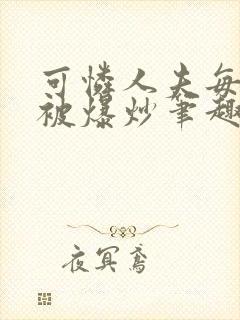 可憐人夫每
被爆炒筆趣
夜冥鳶